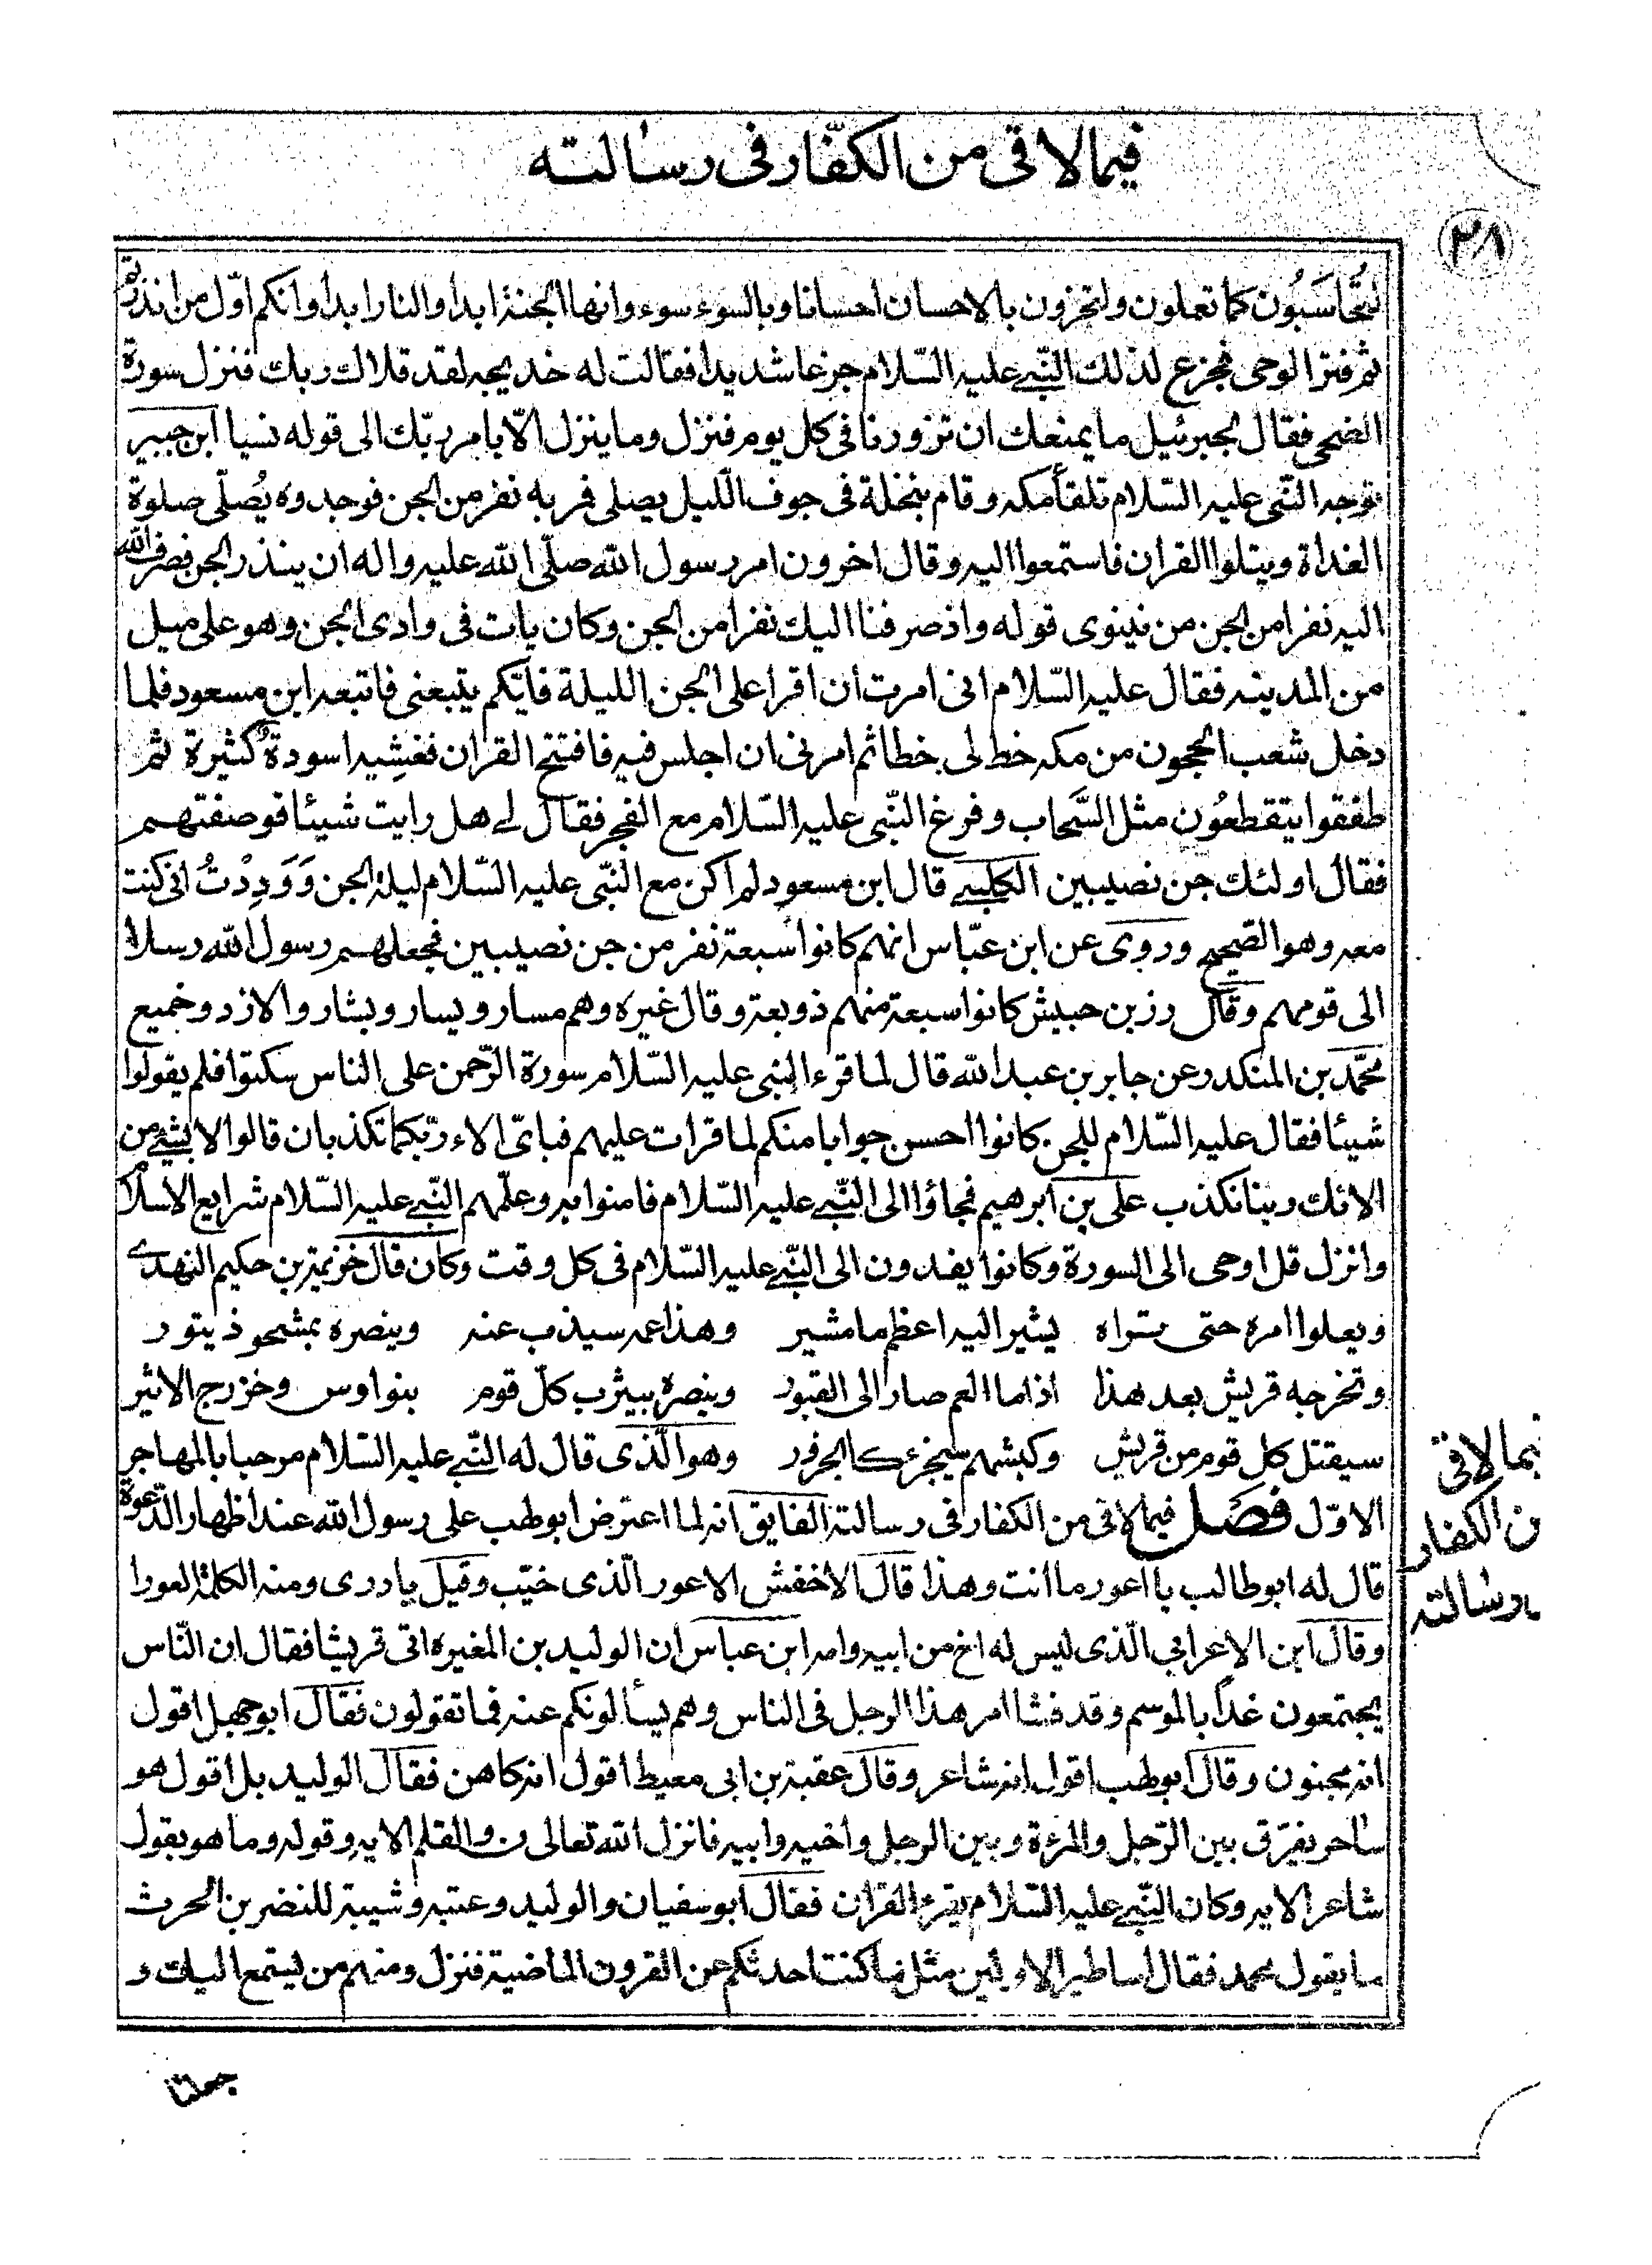 فيما لاقى من الكفّار فى رسالته
٣٨
لتُحاسَبُون كما تعملون ولتجزون بالاحسان احسانا وبالسوء سوء وانها الجنة ابدا والنار ابدا وانكم اوّل من انذرتم
ثم فتر الوحى فجزع لذلك النّبى عليه السّلام جزعا شديدا فقالت له خديجه لقد قلاك ربك فنزل سورة
الضحى فقال لجبرئيل ما يمنعك ان تزورنا فى كل يوم فنزل وما يتنزل الّا بامر ربّك الى قوله نسيا ابن جبير
توجه النّبى عليه السّلام تلقأ مكه وقام بنخلة فى جوف الّليل يصلى فمر به نفر من الجن فوجدوه يُصلّى صلوة
الغداة ويتلوا القران فاستمعوا اليه وقال اخرون امر رسول الله صلّى الله عليه واله ان ينذر الجن فصرف الله
اليه نفرا من الجن من نينوى قوله واذ صرفنا اليك نفرا من الجن وكان بات فى وادى الجن وهو على ميل
من المدينه فقال عليه السّلام انى امرت ان اقرا على الجن الليلة فايّكم يتبعنى فاتبعه ابن مسعود فلما
دخل شعب الحجون من مكه خط لى خطا ثم امرنى ان اجلس فيه فافتتح القران فغشِيه اسودة كثيرة ثم
طفقوا يتقطعُون مثل السَّحاب وفرغ النّبى عليه السّلام مع الفجر فقال لى هل رايت شيئا فوصفتهم
فقال اولئك جن نصيبين الكلبى قال ابن مسعود لم اكن مع النّبى عليه السّلام ليلة الجن وَوَدِدْتُ انى كنت
معه وهو الصّحيح وروى عن ابن عبّاس انهم كانوا سبعة نفر من جن نصيبين فجعلهم رسول الله رسلا
الى قومهم وقال زر بن حبيش كانوا سبعة منهم ذوبعة وقال غيره وهم مسار ويسار وبشار والازد وخميع
محمّد بن المنكدر عن جابر بن عبد الله قال لما قرء النبى عليه السّلام سورة الرّحمن على الناس سكتوا فلم يقولوا
شيئا فقال عليه السّلام للجن كانوا احسن جوابا منكم لما قرات عليهم فباىّ الاء ربّكما تكذبان قالوا لا بشئ من
الائك ربنا نكذب على بن ابرهيم فجاؤا الى النّبى عليه السّلام فامنوا به وعلّمهم النّبى عليه السّلام شرايع الاسلام
وانزل قل اوحى الى السورة وكانوا يفدون الى النّبى عليه السّلام فى كل وقت وكان قال خزيمة بن حكيم النهدى
ويعلوا امره حتى تراه يشير اليه اعظم ما مشير وهذا عمه سيذب عنه وينصره بمشحوذ يتور
وتخرجه قريش بعد هذا اذا ما العم صار الى القبور وينصره بيثرب كلّ قوم بنو اوس وخزرج الاثير
سيقتل كل قوم من قريش وكبشهم سيجزء كالجزور وهو الّذى قال له النّبى عليه السّلام مرحبا بالمهاجر
الاوّل فصل فيما لاقى من الكفار فى رسالته الفايق انه لما اعترض ابو طهب على رسول الله عند اظهار الدّعوة
قال له ابو طالب يا اعور ما انت وهذا قال الاخفش الاعور الّذى خيّب وقيل يا ردى ومنه الكلمة العورا
وقال ابن الاعرابي الّذى ليس له اخ من ابيه وامه ابن عباس ان الوليد بن المغيره اتى قريشا فقال ان النّاس
يجتمعون غدا بالموسم وقد فشا امر هذا الرجل فى الناس وهم يسألونكم عنه فما تقولون فقال ابو جهل اقول
انه مجنون وقال ابو طهب اقول انه شاعر وقال عقبة بن ابى معيط اقول انه كاهن فقال الوليد بل اقول هو
ساحر يفرّق بين الرّجل والمرءة وبين الرجل واخيه وابيه فانزل الله تعالى ن والقلم الايه وقوله وما هو بقول
شاعر الايه وكان النّبى عليه السّلام يقرء القران فقال ابو سفيان والوليد وعتبه وشيبة للنضر بن الحرث
ما يقول محمد فقال اساطير الاولين مثل ما كنت احدثكم عن القرون الماضية فنزل ومنهم من يستمع اليك و
يما لاقى
ن الكفار
رسالته
جعلنا